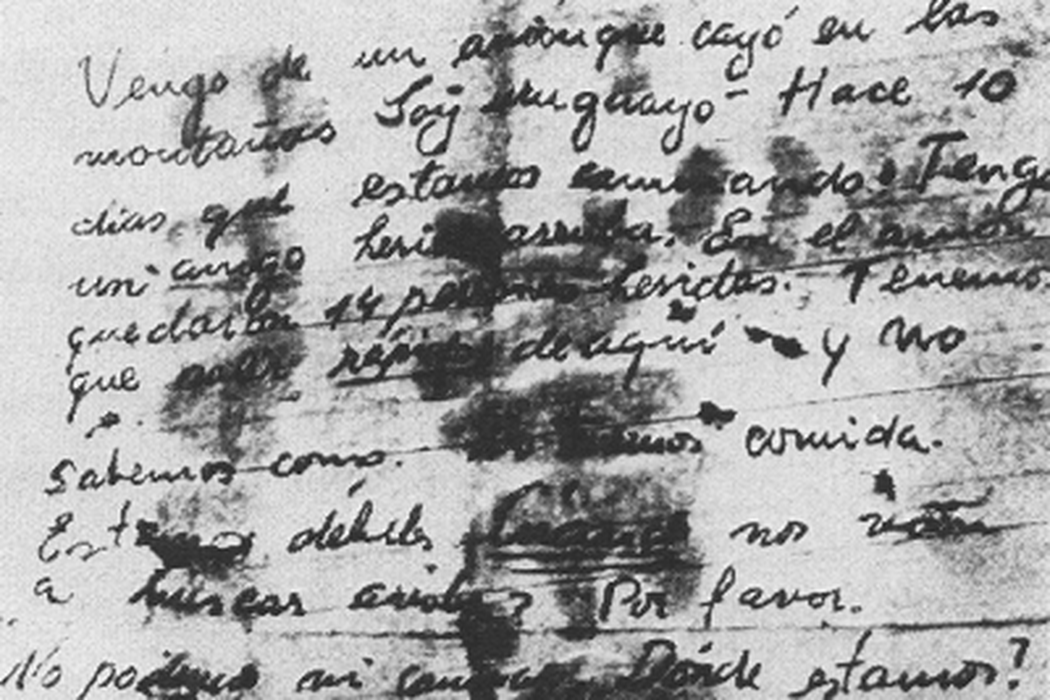 Vengo de un avión que cayó en las
montañas Soy uruguayo - Hace 10
dias que estamos caminando. Tengo
un amigo herido arriba. En el avión
quedaron 14 personas heridas. Tenemos
que salir rápido de aquí y no
sabemos como. No tenemos comida.
Estamos débiles Cuando nos van
a buscar arriba? Por favor.
No podemos ni caminar Dónde estamos?